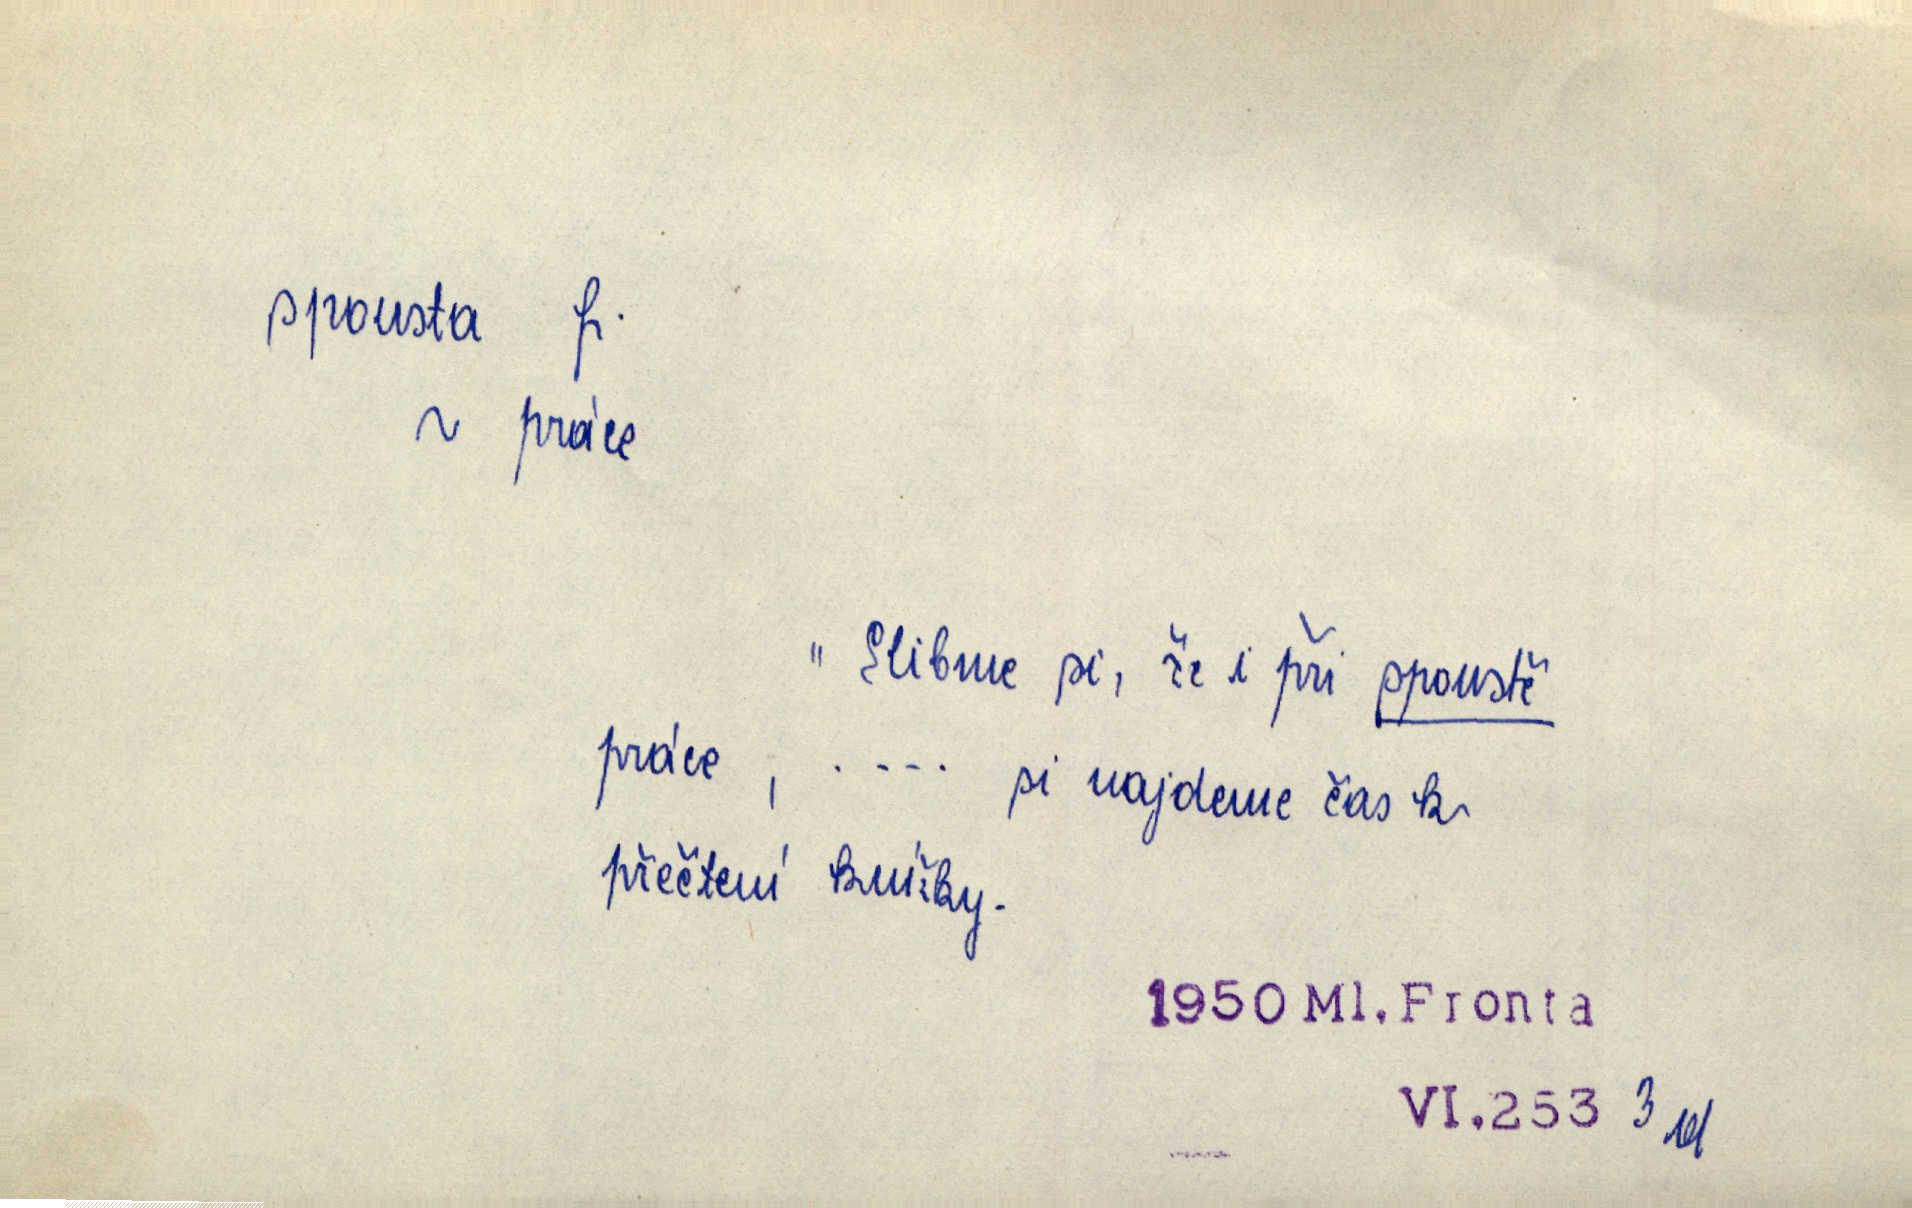 spousta f.
~ práce
" Slibme si, že i při spoustě
práce , . - - - . si najdeme čas k
přečtení knížky.
1950 Ml. Fronta
VI.253 3